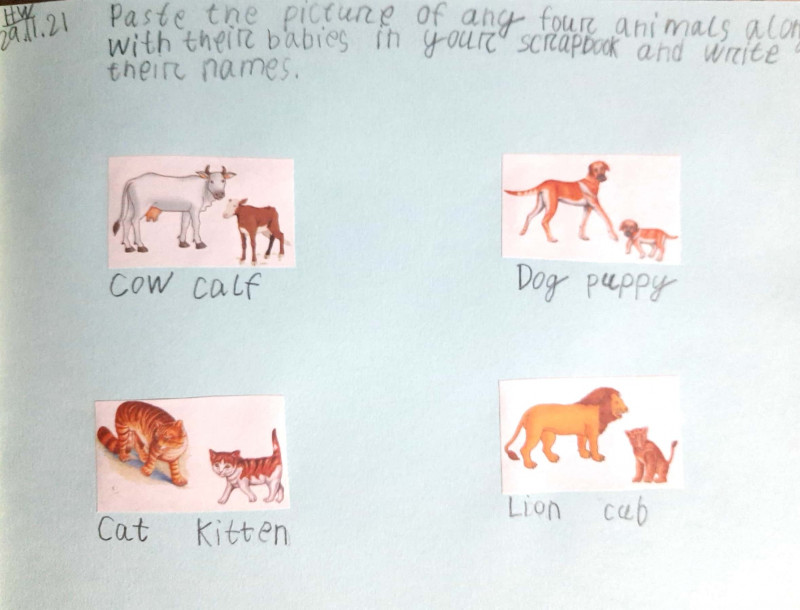 HW
29.11.21
Paste the picture of any four animals alon
with their babies in your scrapbook and write
their names.
Cow calf
Dog puppy
Cat Kitten
Lion cub